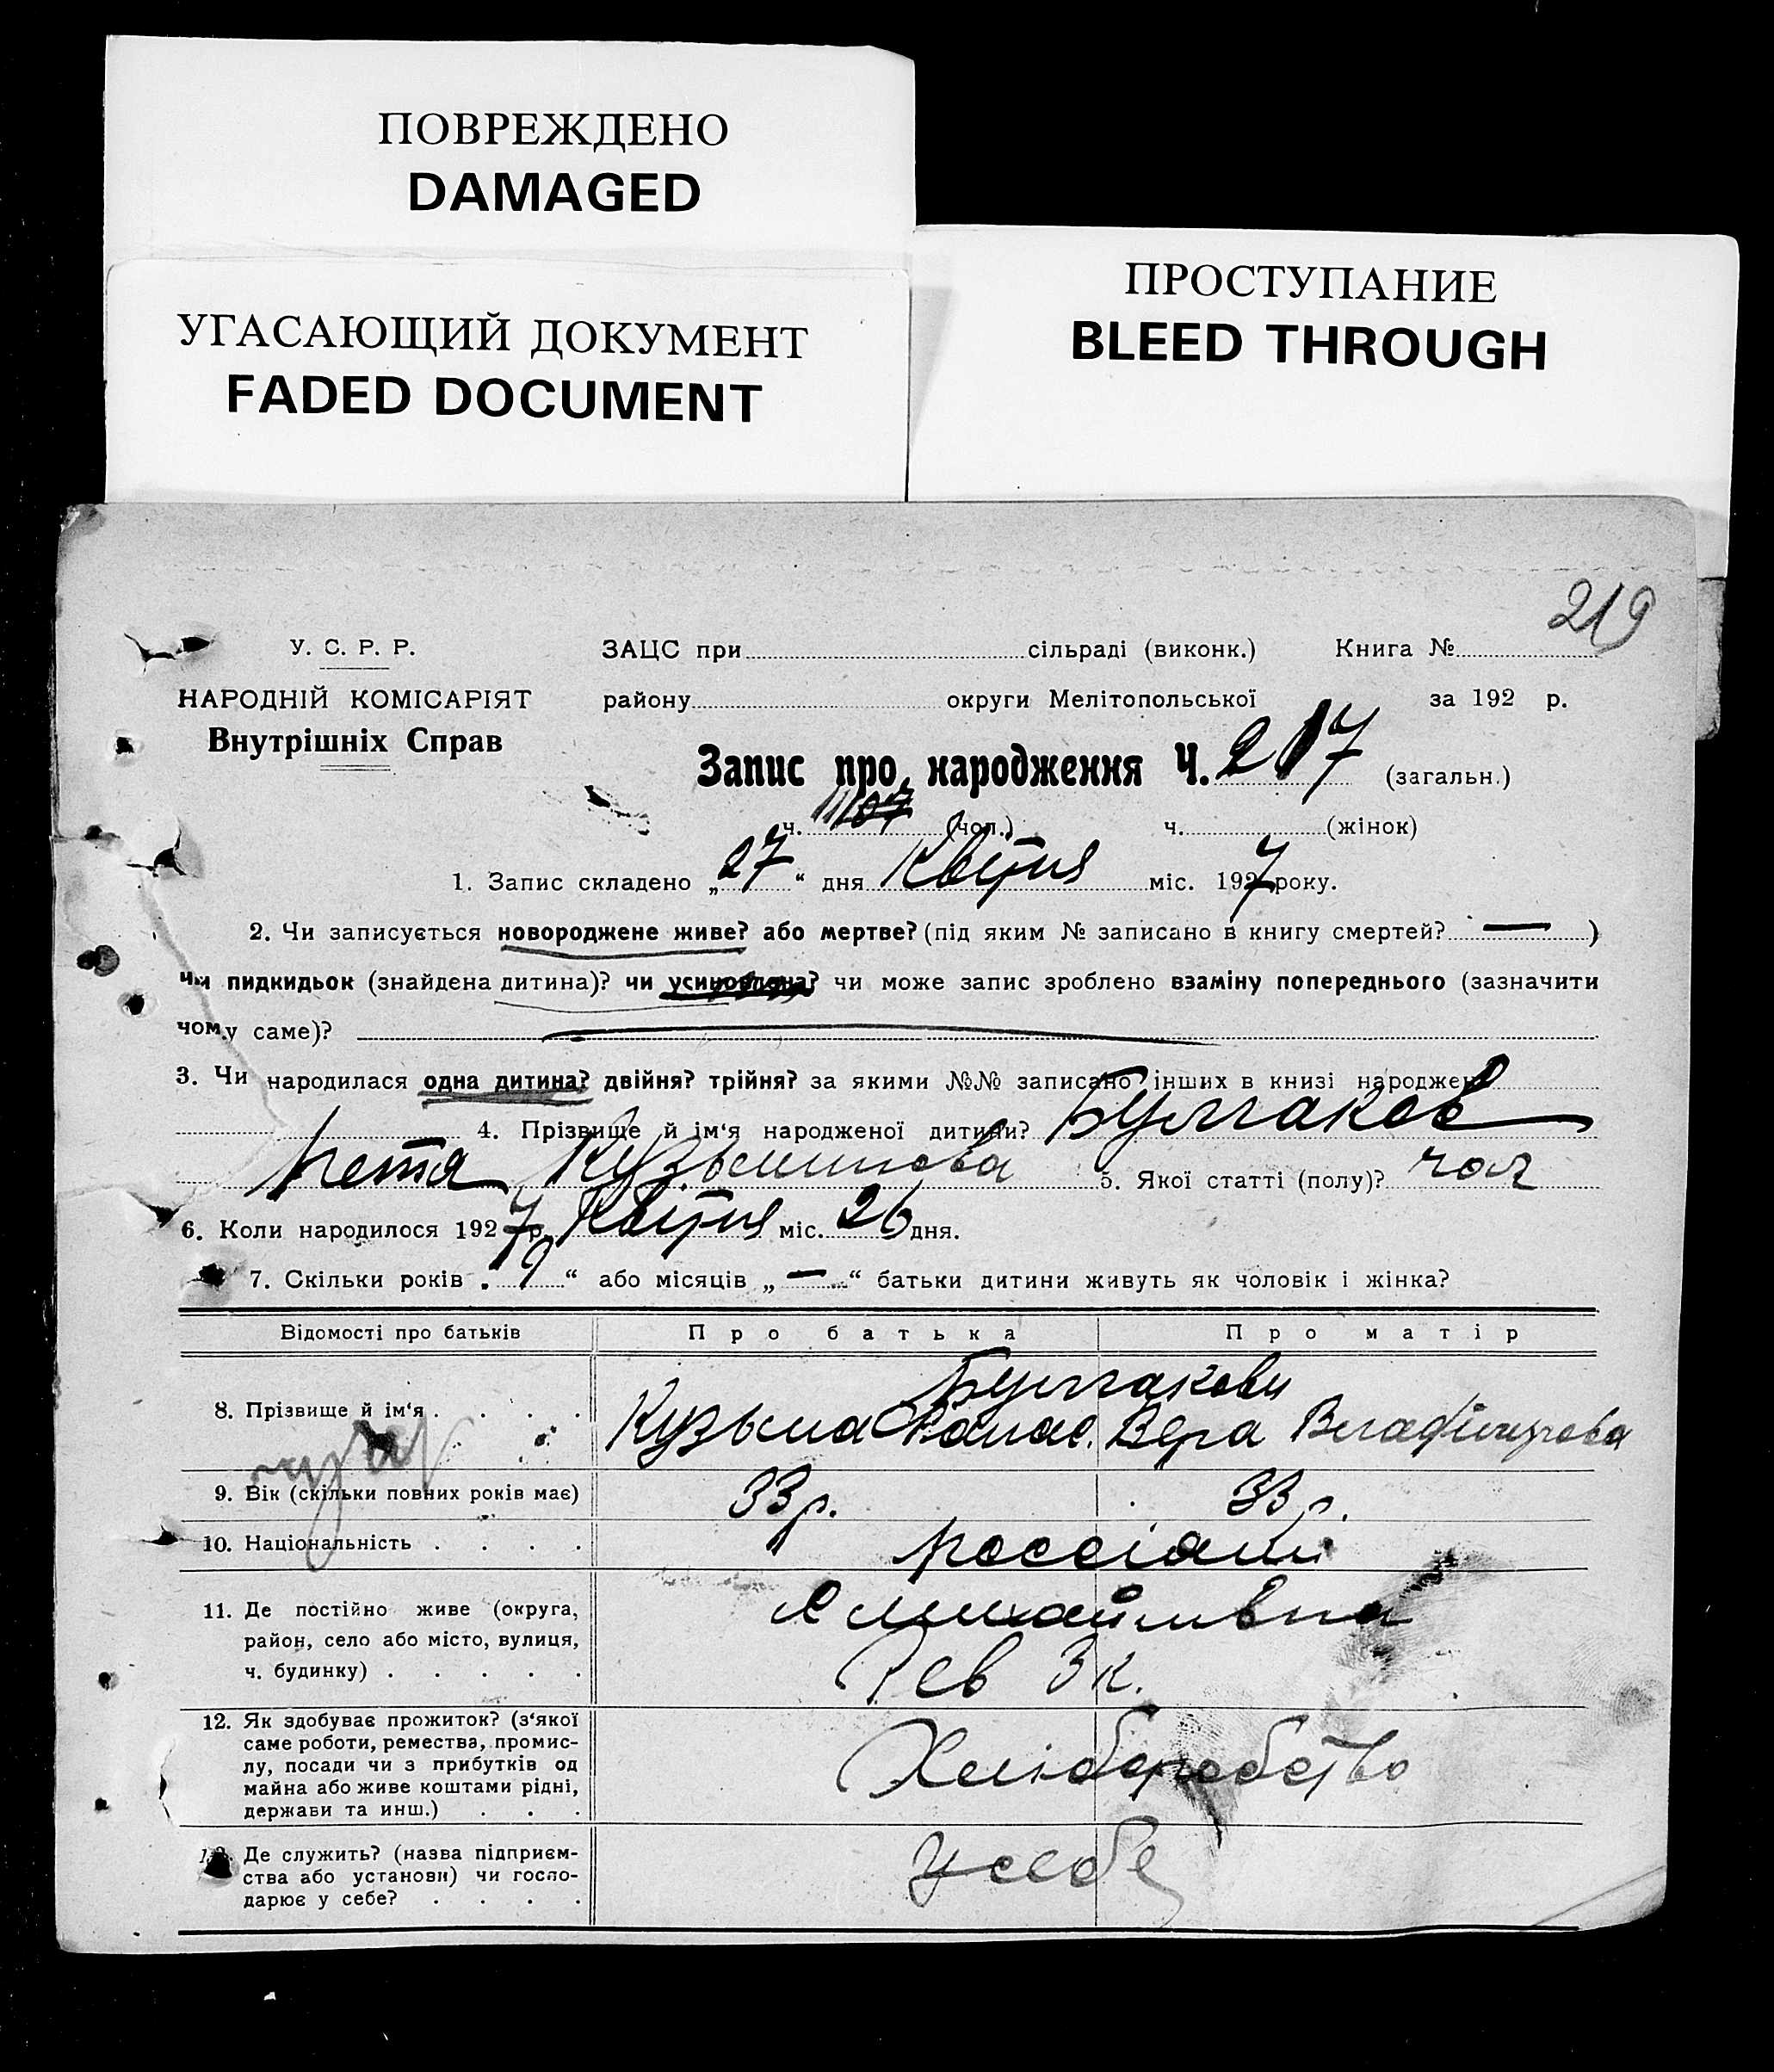 ПОВРЕЖДЕНО
DAMAGED
УГАСАЮЩИЙ ДОКУМЕНТ
FADED DOCUMENT
ПРОСТУПАНИЕ
BLEED THROUGH
219
У. С. Р. Р.
НАРОДНІЙ КОМІСАРІЯТ
Внутрішніх Справ
ЗАЦС при сільраді (виконк.) Книга №
району округи Мелітопольської за 192 р.
Запис про народження Ч. 217 (загальн.)
ч. 107 (чол.) ч. (жінок)
1. Запис складено „27“ дня Квітня міс. 1927 року.
2. Чи записується новороджене живе? або мертве? (під яким № записано в книгу смертей? — )
чи пидкидьок (знайдена дитина)? чи усиновлена? чи може запис зроблено взаміну попереднього (зазначити
чому саме)?
3. Чи народилася одна дитина? двійня? трійня? за якими №№ записано інших в книзі народжень
4. Прізвище й ім'я народженої дитини? Булгаков
Петя Кузьминова 5. Якої статті (полу)? чол
6. Коли народилося 1927 р. Квітня міс. 26 дня.
7. Скільки років „ “ або місяців „—“ батьки дитини живуть як чоловік і жінка?
Відомості про батьків Про батька Про матір
8. Прізвище й ім'я . . . .
Булгакови
Кузьма Панас. Вера Владимирова
9. Вік (скільки повних років має) 33 р. 33 р.
10. Національність . . . . россіяни
11. Де постійно живе (округа,
район, село або місто, вулиця,
ч. будинку) . . . . .
с Михайлівна
Рев 3 к.
12. Як здобуває прожиток? (з'якої
саме роботи, ремества, промис-
лу, посади чи з прибутків од
майна або живе коштами рідні,
держави та инш.) . . .
Хліборобство
13. Де служить? (назва підприєм-
ства або установи) чи госпо-
дарює у себе? . . . .
у себе